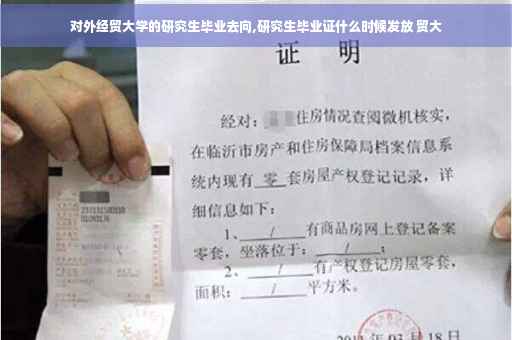 对外经贸大学的研究生毕业去向,研究生毕业证什么时候发放 贸大
证 明
经对: 住房情况查阅微机核实,
在临沂市房产和住房保障局档案信息系
统内现有 零 套房屋产权登记记录,详
细信息如下:
1、 / 有商品房网上登记备案
零套,坐落位于: / ;
2、 / 有产权登记房屋零套,
面积: / 平方米。
03 月 18 日